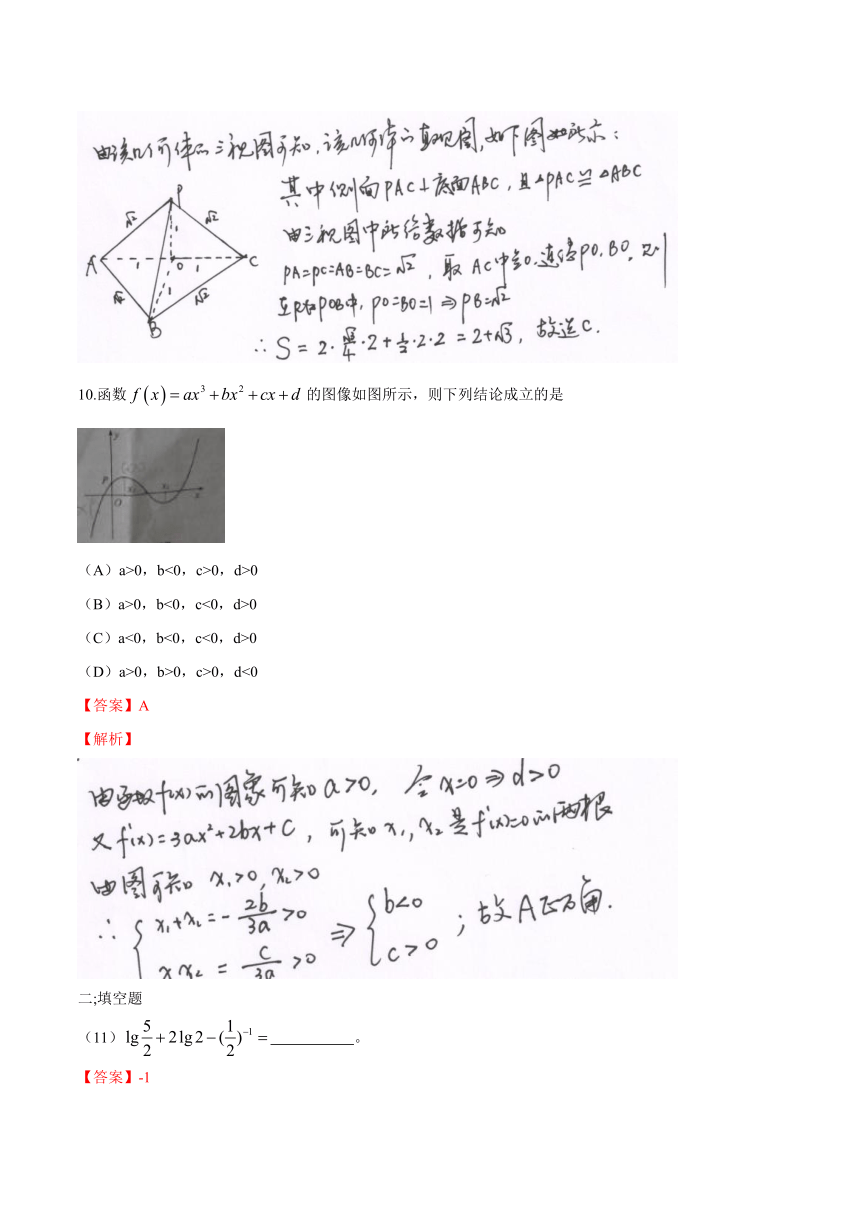 由该几何体的三视图可知,该几何体的直观图,如下图如所示:
其中侧面PAC⊥底面ABC,且△PAC≌△ABC
由三视图中所给数据可知
PA=PC=AB=BC=√2,取AC中点O,连结PO,BO,则
在Rt△POB中,PO=BO=1⇒PB=√2
∴S=2·√3/4·2+1/2·2·2=2+√3,故选C.
P
√2 √2
1
A 1 O 1 C
√2 1 √2
B
10.函数 f(x)=ax³+bx²+cx+d 的图像如图所示,则下列结论成立的是
y
P
x₁ x₂
O x
(A)a>0,b<0,c>0,d>0
(B)a>0,b<0,c<0,d>0
(C)a<0,b<0,c<0,d>0
(D)a>0,b>0,c>0,d<0
【答案】A
【解析】
由函数f(x)的图象可知a>0, 令x=0⇒d>0
又f'(x)=3ax²+2bx+c,可知x₁,x₂是f'(x)=0的两根
由图可知 x₁>0,x₂>0
∴{x₁+x₂=-2b/3a>0 ⇒ {b<0 ;故A正确.
x₁x₂=c/3a>0 c>0
二;填空题
(11)lg5/2+2lg2-(1/2)⁻¹= 。
【答案】-1